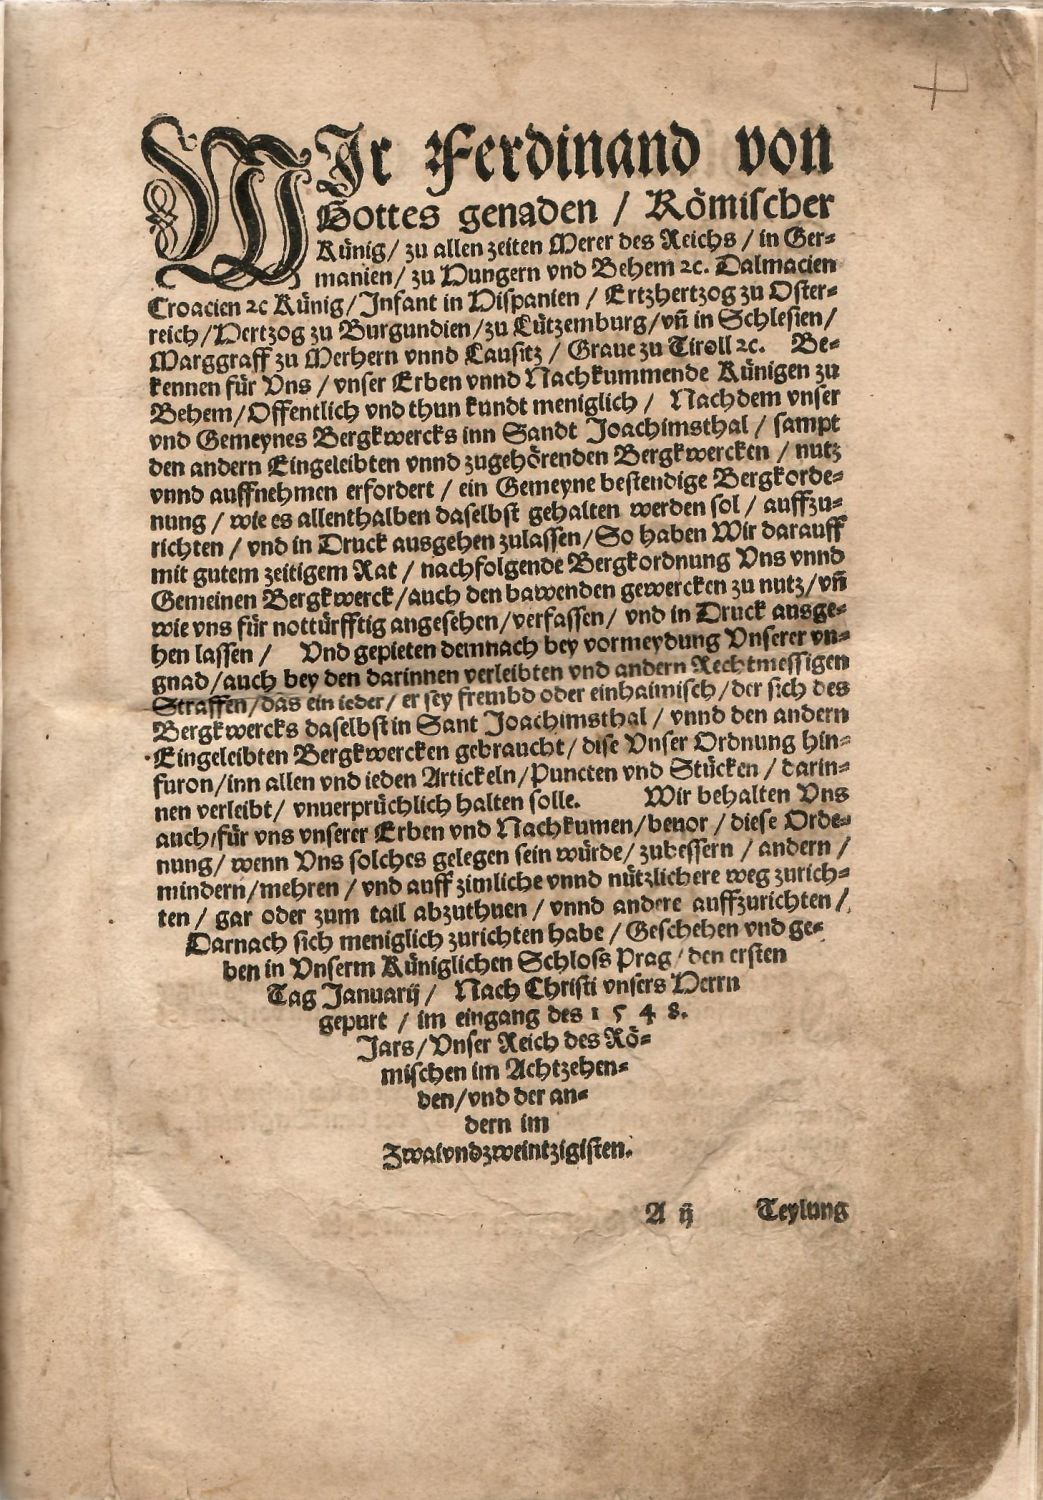 WIr Ferdinand von
Gottes genaden / Römischer
Künig / zu allen zeiten Merer des Reichs / in Ger=
manien / zu Hungern vnd Behem ꝛc. Dalmacien
Croacien ꝛc Künig / Infant in Hispanien / Ertzhertzog zu Oster=
reich / Hertzog zu Burgundien / zu Lützemburg / vn̄ in Schlesien /
Marggraff zu Merhern vnnd Lausitz / Graue zu Tiroll ꝛc. Be=
kennen für Vns / vnser Erben vnnd Nachkummende Künigen zu
Behem / Offentlich vnd thun kundt meniglich / Nachdem vnser
vnd Gemeynes Bergkwercks inn Sandt Joachimsthal / sampt
den andern Eingeleibten vnnd zugehörenden Bergkwercken / nutz
vnnd auffnehmen erfordert / ein Gemeyne bestendige Bergkorde=
nung / wie es allenthalben daselbst gehalten werden sol / auffzu=
richten / vnd in Druck ausgehen zulassen / So haben Wir darauff
mit gutem zeitigem Rat / nachfolgende Bergkordnung Vns vnnd
Gemeinen Bergkwerck / auch den bawenden gewercken zu nutz / vn̄
wie vns für nottürfftig angesehen / verfassen / vnd in Druck ausge=
hen lassen / Vnd gepieten demnach bey vormeydung Vnserer vn=
gnad / auch bey den darinnen verleibten vnd andern Rechtmessigen
Straffen / das ein ieder / er sey frembd oder einhaimisch / der sich des
Bergkwercks daselbst in Sant Joachimsthal / vnnd den andern
Eingeleibten Bergkwercken gebraucht / dise Vnser Ordnung hin=
furon / inn allen vnd ieden Artickeln / Puncten vnd Stücken / darin=
nen verleibt / vnuerprüchlich halten solle. Wir behalten Vns
auch / für vns vnserer Erben vnd Nachkumen / beuor / diese Orde=
nung / wenn Vns solches gelegen sein würde / zubessern / andern /
mindern / mehren / vnd auff zimliche vnnd nützlichere weg zurich=
ten / gar oder zum tail abzuthuen / vnnd andere auffzurichten /
Darnach sich meniglich zurichten habe / Geschehen vnd ge=
ben in Vnserm Küniglichen Schloss Prag / den ersten
Tag Januarij / Nach Christi vnsers Herrn
gepurt / im eingang des 1548.
Jars / Vnser Reich des Rö=
mischen im Achtzehen=
den / vnd der an=
dern im
Zwaivndzweintzigisten.
A ij Teylung